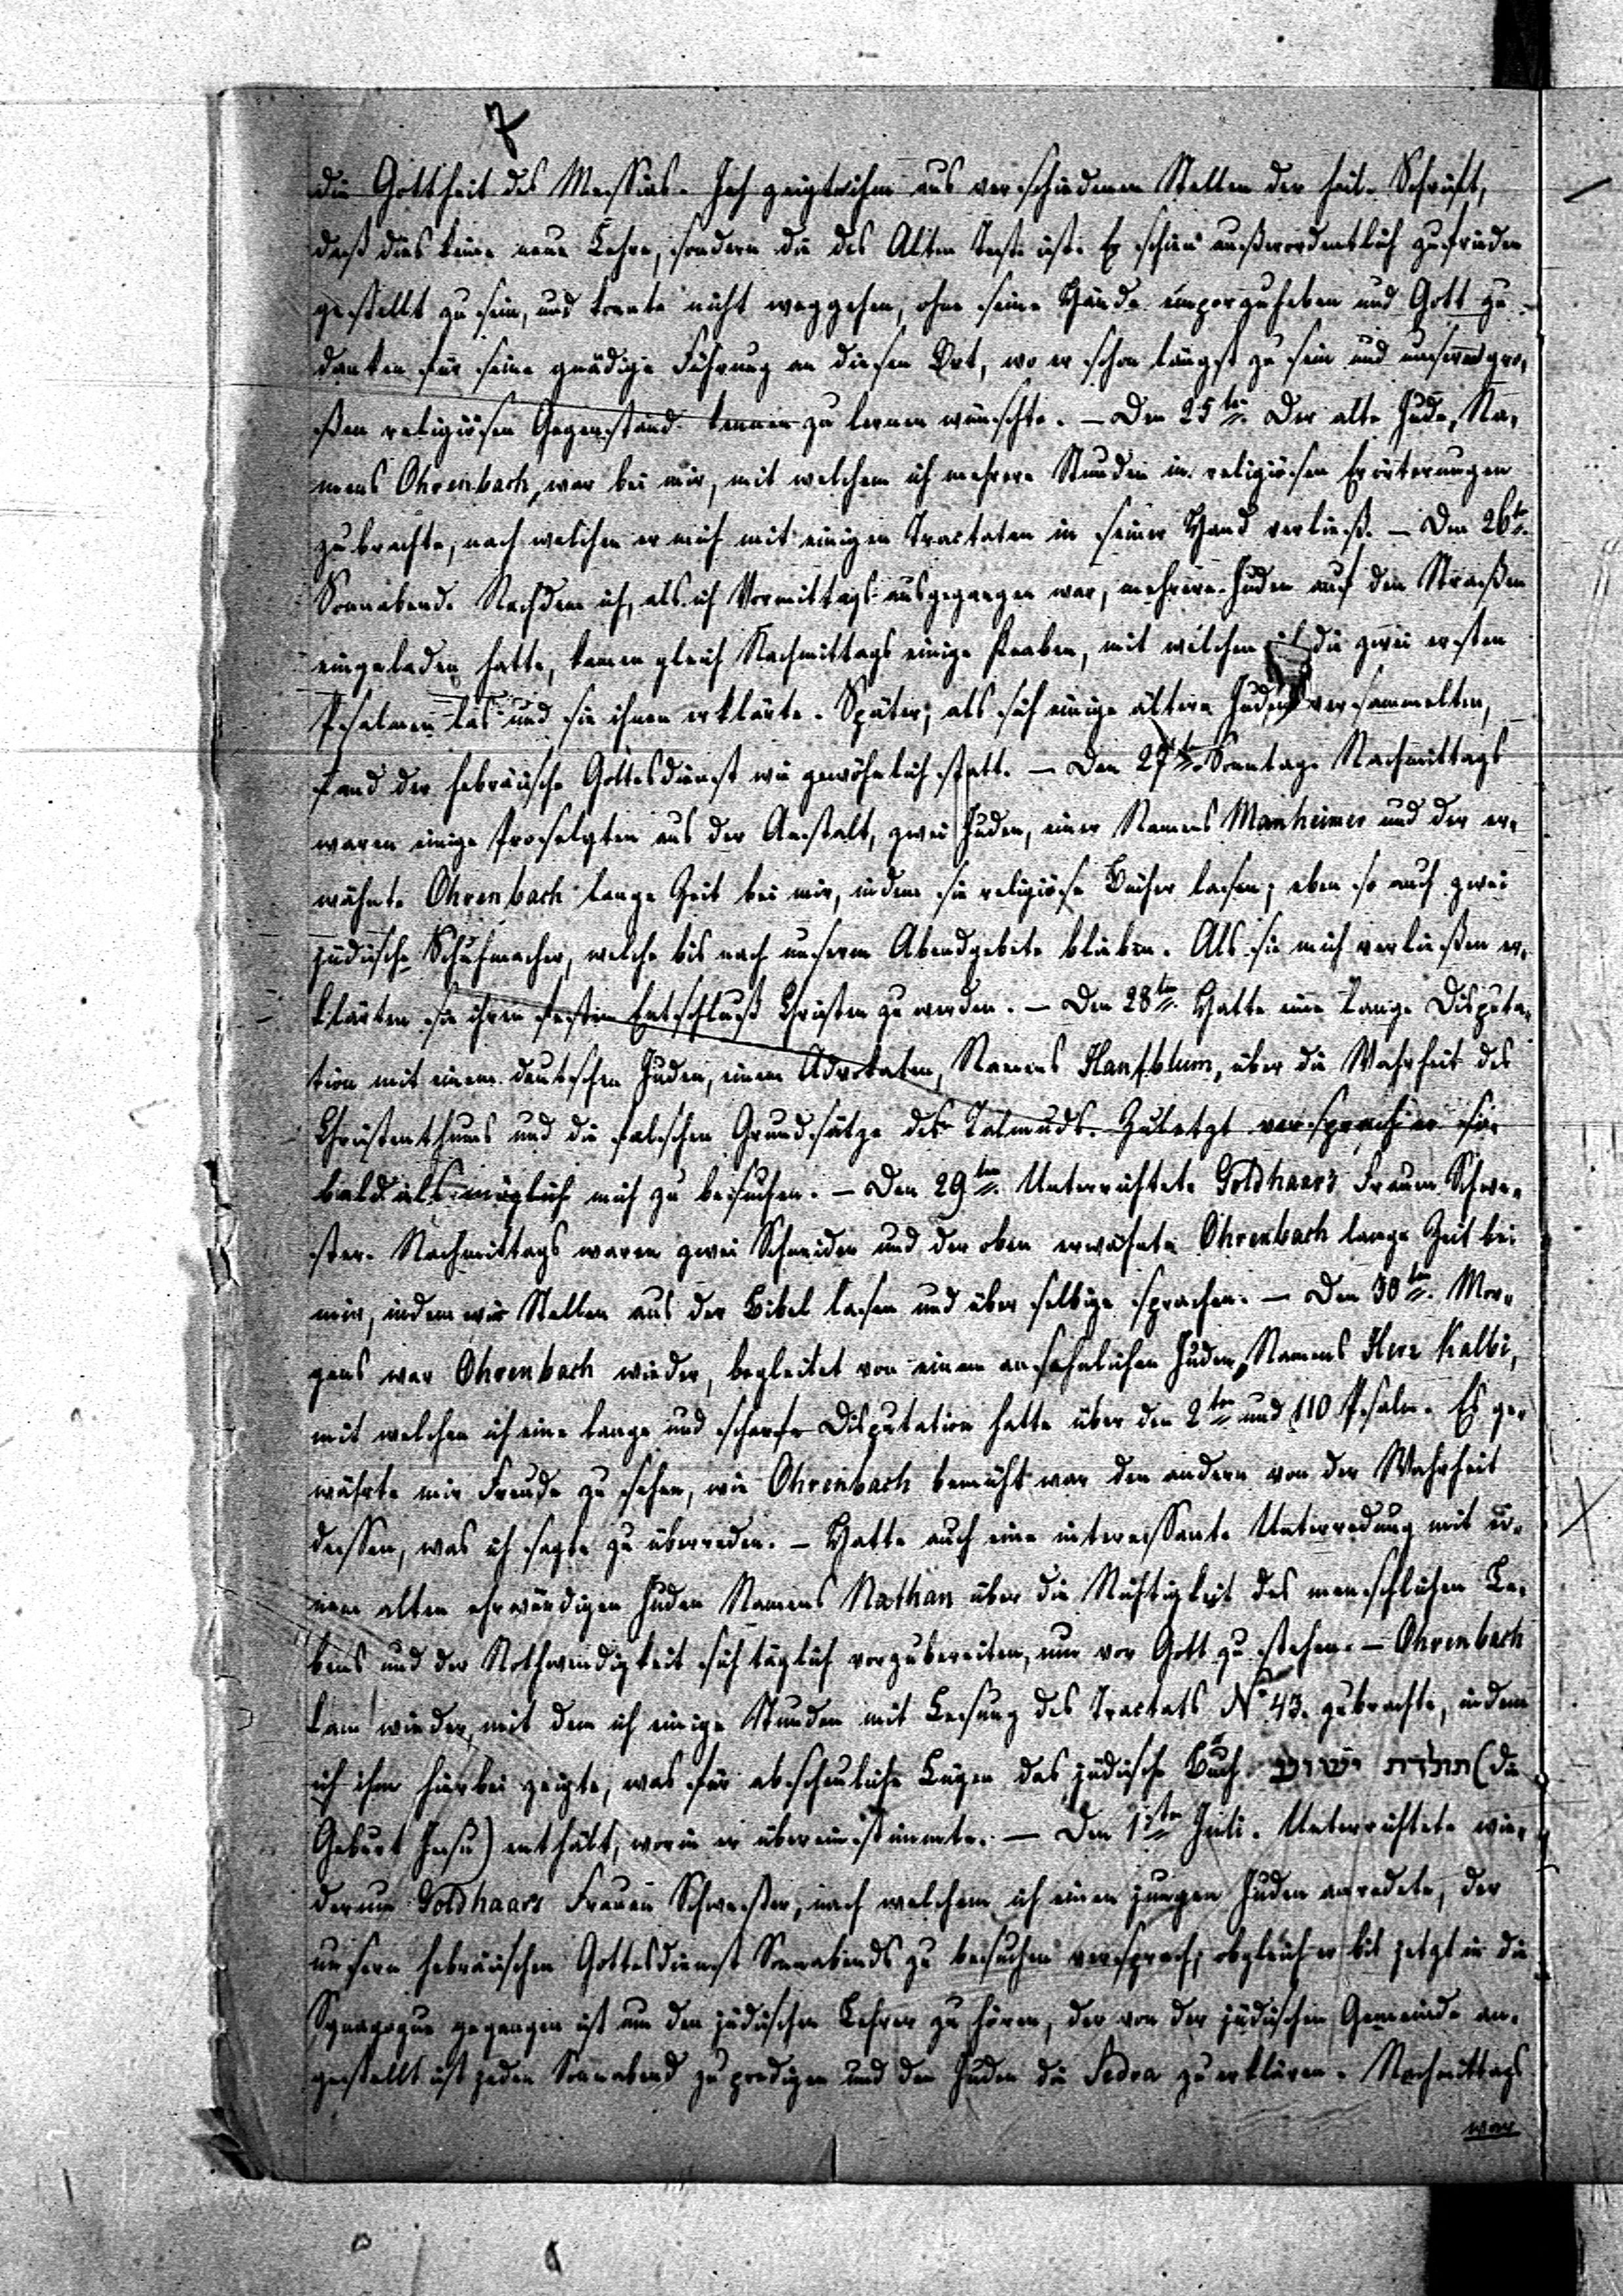 7
die Gottheit des Messias. Ich zeigte ihm aus verschiedenen Stellen der heil. Schrift,
daß dies keine neue Lehre, sondern die des Alten Test. ist. Er schien außerordentlich zufrieden
gestellt zu sein, und konnte nicht weggehen, ohne seine Hände emporzuheben und Gott zu
danken für seine gnädige Führung an diesen Ort, wo er schon längst zu sein und unsern gro-
ßen religiösen Gegenstand kennen zu lernen wünschte. – Den 25ten Der alte Jude, Na-
mens Ohrenbach, war bei mir, mit welchem ich mehrere Stunden in religiösen Erörterungen
zubrachte, nach welchen er mich mit einigen Tractaten in seiner Hand verließ. – Den 26ten
Sonnabend. Nachdem ich, als ich Vormittags ausgegangen war, mehrere Juden auf den Straßen
eingeladen hatte, kamen gleich Nachmittags einige Knaben, mit welchen ich die zwei ersten
Psalmen las und sie ihnen erklärte. Später, als sich einige ältere Juden versammelten,
fand der hebräische Gottesdienst wie gewöhnlich statt. – Den 27ten Sonntag. Nachmittags
waren einige Proselyten aus der Anstalt, zwei Juden, einer Namens Manheimer und der er-
wähnte Ohrenbach lange Zeit bei mir, indem sie religiöse Bücher lasen; eben so auch zwei
jüdische Schuhmacher, welche bis nach unserm Abendgebete blieben. Als sie mich verließen er-
klärten sie ihren festen Entschluß Christen zu werden. – Den 28ten Hatte eine lange Disputa-
tion mit einem deutschen Juden, einem Advokaten, Namens Hanfblum, über die Wahrheit des
Christenthums und die falschen Grundsätze des Talmuds. Zuletzt versprach er so
bald als möglich mich zu besuchen. – Den 29ten Unterrichtete Goldhaars Frauen Schwe-
ster. Nachmittags waren zwei Schneider und der oben erwähnte Ohrenbach lange Zeit bei
mir, indem wir Stellen aus der Bibel lasen und über selbige sprachen. – Den 30ten Mor-
gens war Ohrenbach wieder, begleitet von einem ansehnlichen Juden, Namens Herz Kalbi,
mit welchen ich eine lange und scharfe Disputation hatte über den 2ten und 110 Psalm. Es ge-
währte mir Freude zu sehen, wie Ohrenbach bemüht war den andern von der Wahrheit
dessen, was ich sagte zu überreden. – Hatte auch eine interessante Unterredung mit ei-
nem alten ehrwürdigen Juden Namens Nathan über die Nichtigkeit des menschlichen Le-
bens und der Nothwendigkeit sich täglich vorzubereiten, um vor Gott zu stehen. – Ohrenbach
kam wieder, mit dem ich einige Stunden mit Lesung des Tractats No 43. zubrachte, indem
ich ihm hierbei zeigte, was für abscheuliche Lügen das jüdische Buch תולדת ישוע (die
Geburt Jesu) enthält, worin er übereinstimmte. – Den 1sten Juli. Unterrichtete wie-
derum Goldhaars Frauen Schwester, nach welchem ich einen jungen Juden anredete, der
unsern hebräischen Gottesdienst Sonnabends zu besuchen versprach, obgleich er bis jetzt in die
Synagogue gegangen ist um den jüdischen Lehrer zu hören, der von der jüdischen Gemeinde an-
gestellt ist jeden Sonnabend zu predigen und den Juden die Sedra zu erklären. Nachmittags
war